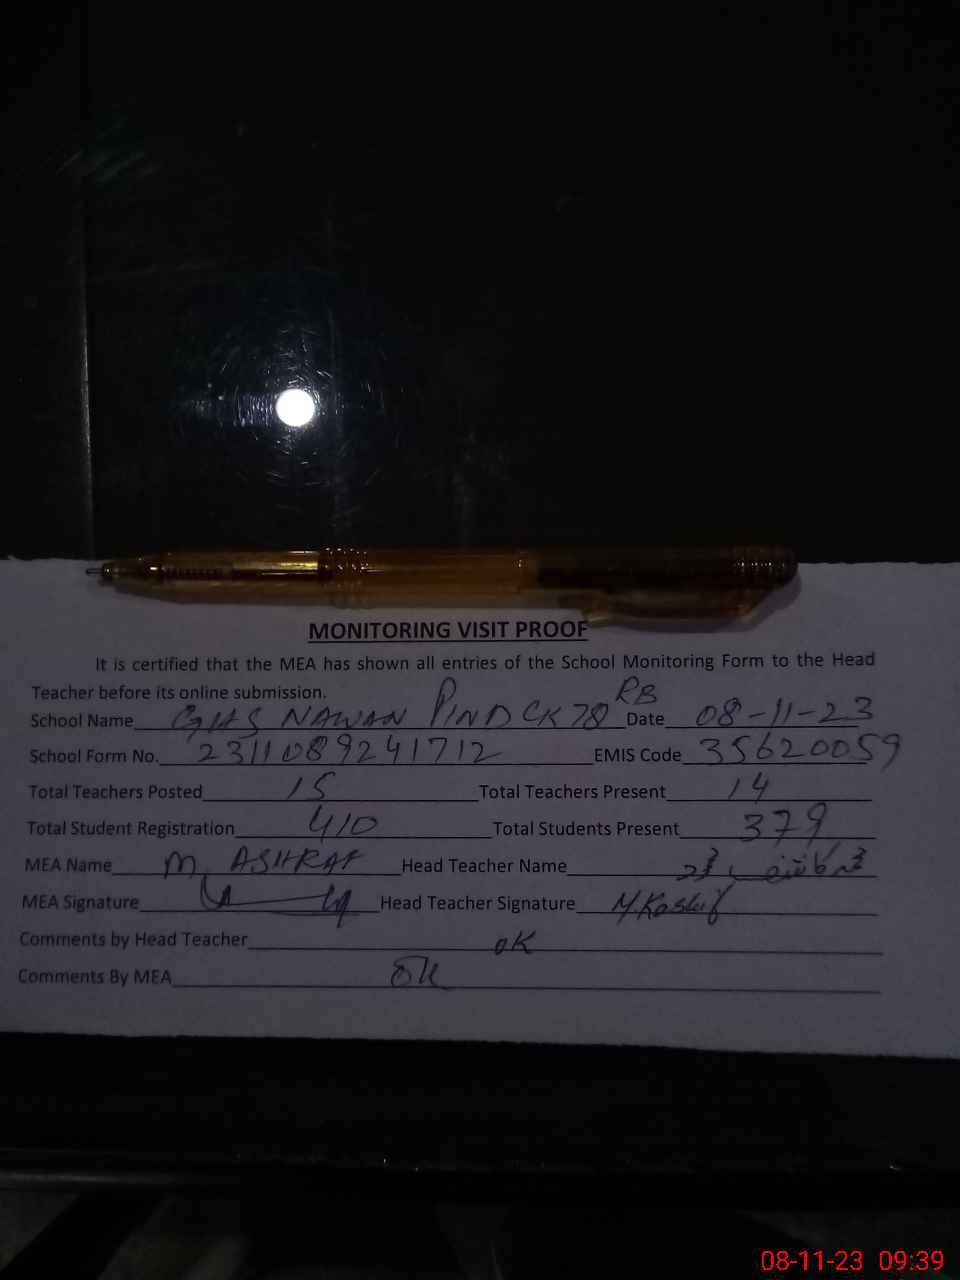 MONITORING VISIT PROOF
It is certified that the MEA has shown all entries of the School Monitoring Form to the Head
Teacher before its online submission.
School Name GHS NAWAN PIND CK 78 RB Date 08-11-23
School Form No. 2311089241712 EMIS Code 35620059
Total Teachers Posted 15 Total Teachers Present 14
Total Student Registration 410 Total Students Present 379
MEA Name M. ASHRAF Head Teacher Name محمد کاشف
MEA Signature Head Teacher Signature M.Kashif
Comments by Head Teacher OK
Comments By MEA OK
08-11-23 09:39